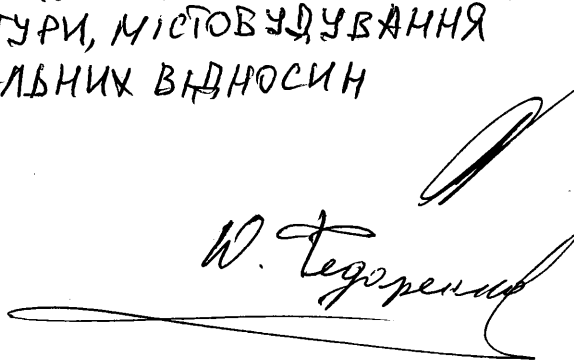 ТУРИ, МІСТОБУДУВАННЯ
ЛЬНИХ ВІДНОСИН
Ю. Федоренко